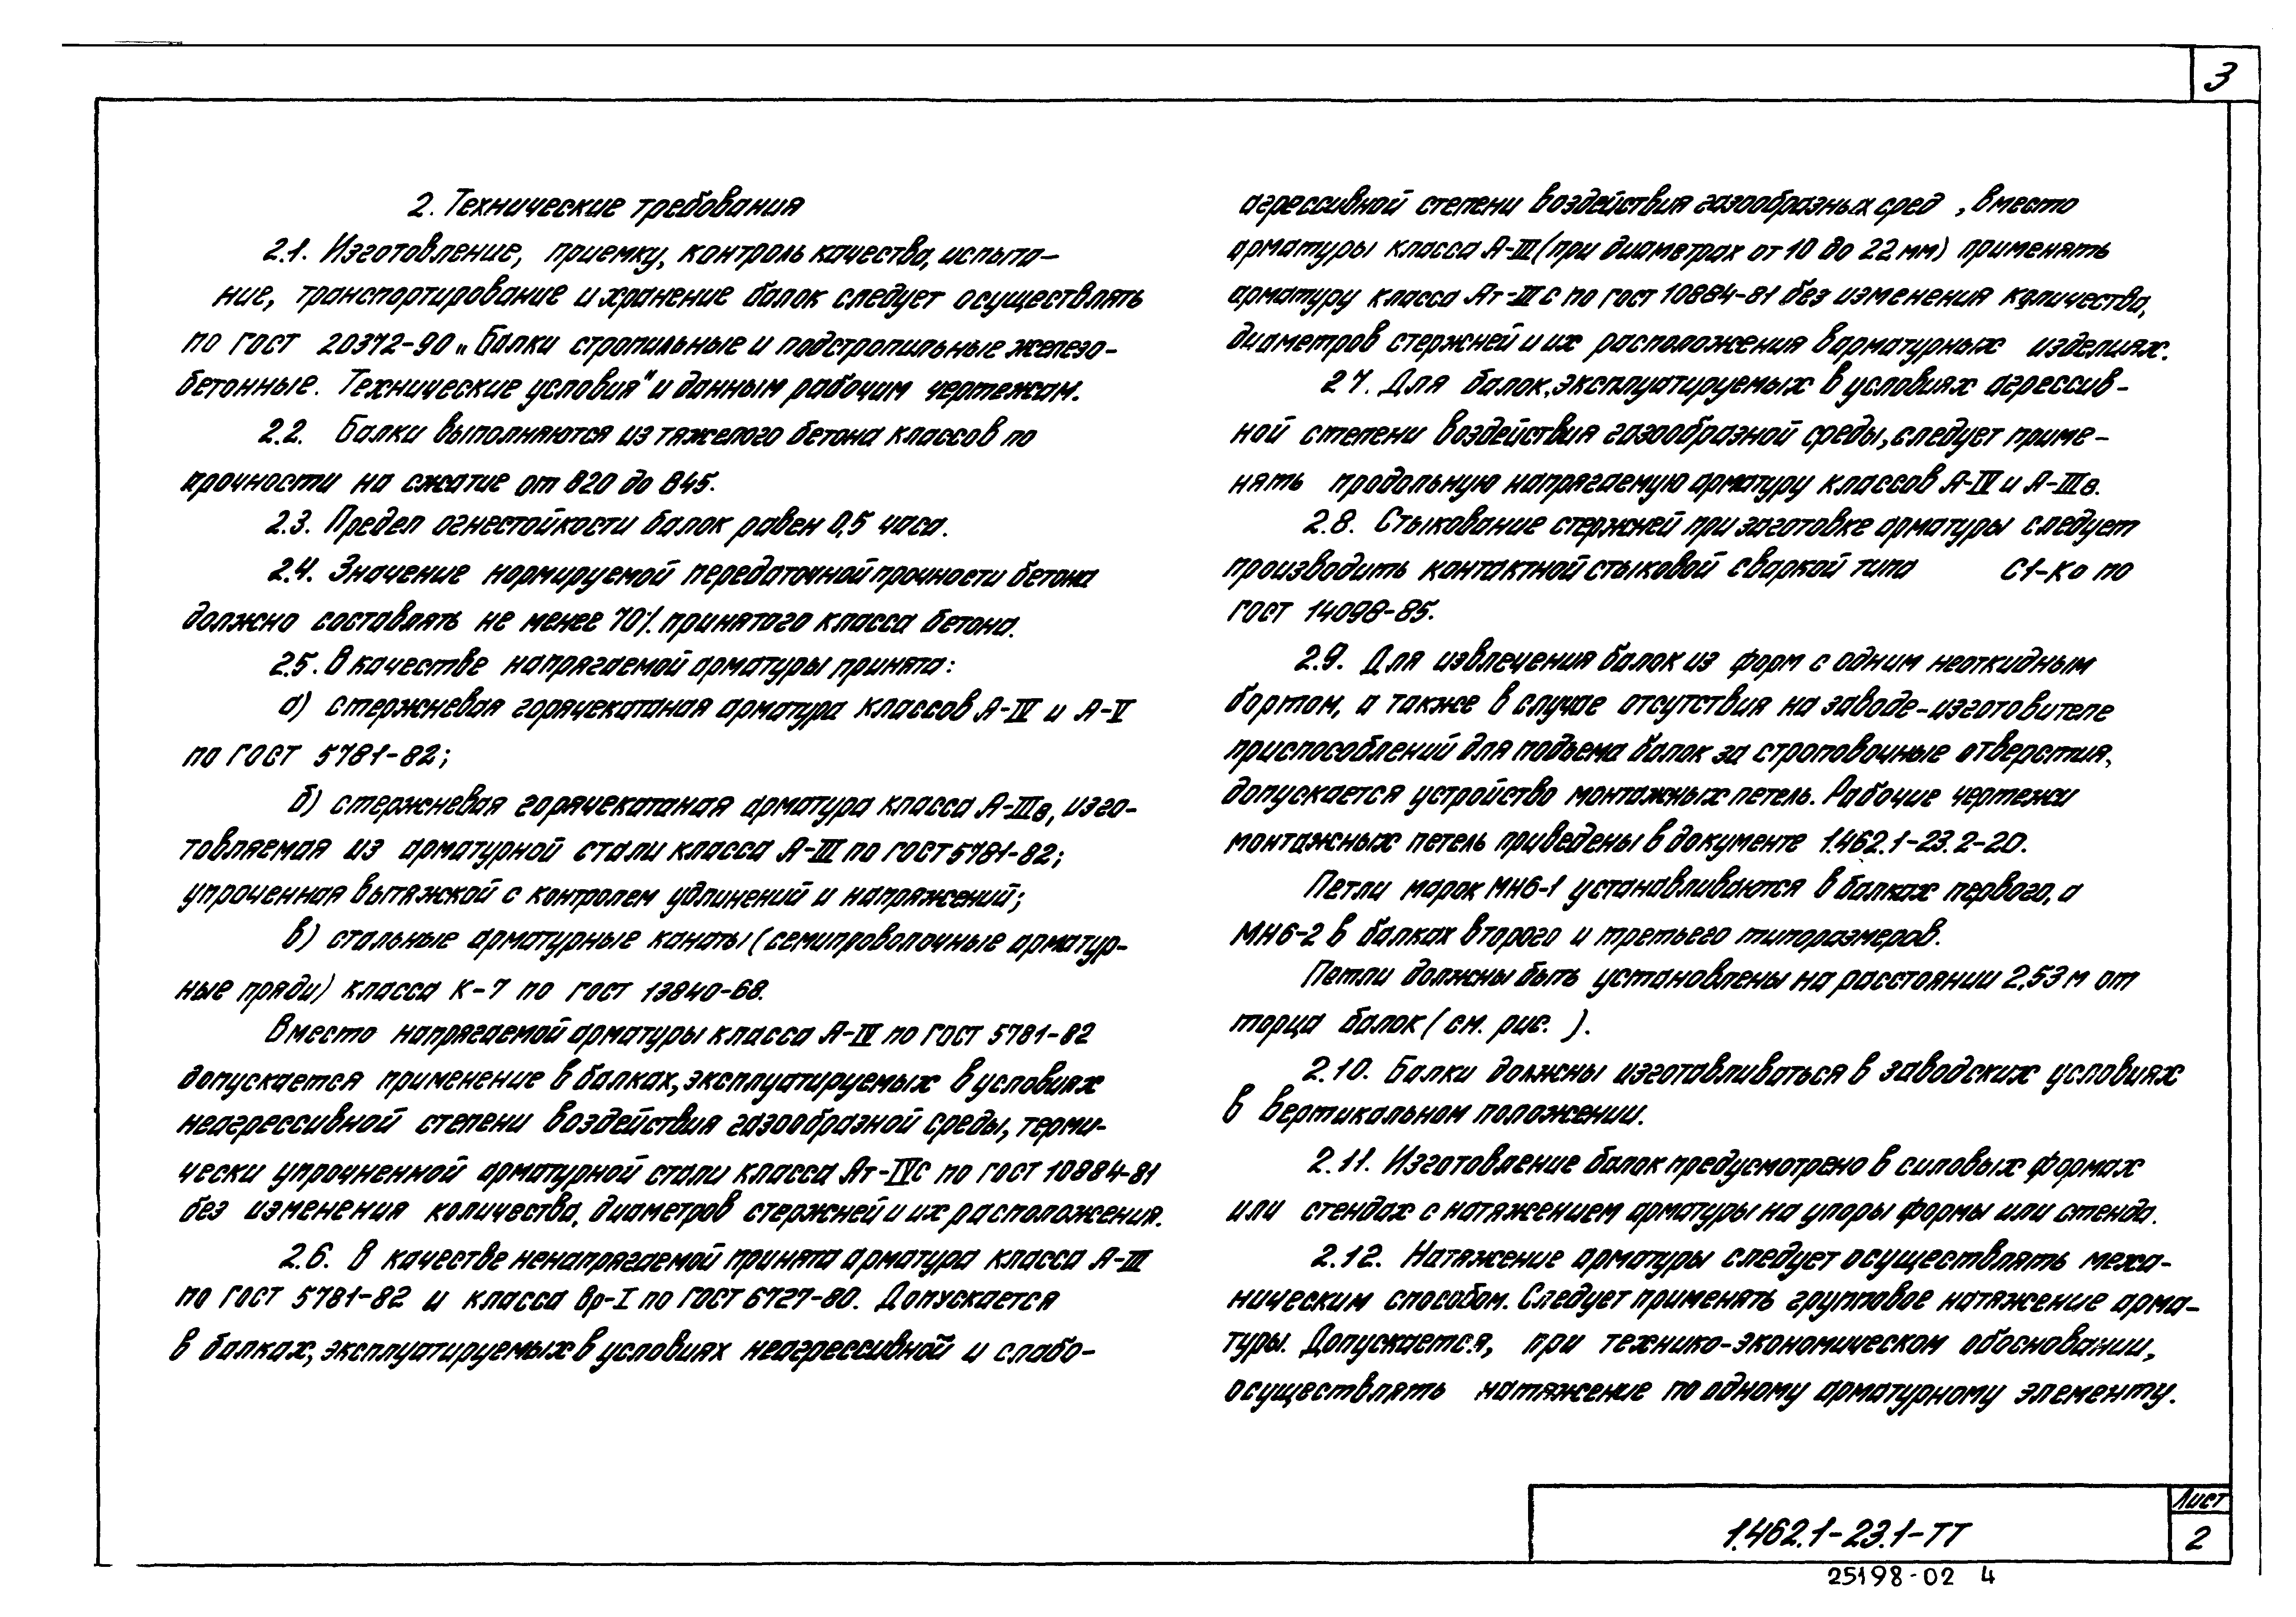 3
2. Технические требования
2.1. Изготовление, приемку, контроль качества, испыта-
ние, транспортирование и хранение балок следует осуществлять
по ГОСТ 20372-90 „Балки стропильные и подстропильные железо-
бетонные. Технические условия" и данным рабочим чертежам.
2.2. Балки выполняются из тяжелого бетона классов по
прочности на сжатие от В20 до В45.
2.3. Предел огнестойкости балок равен 0,5 часа.
2.4. Значение нормируемой передаточной прочности бетона
должно составлять не менее 70% принятого класса бетона.
2.5. В качестве напрягаемой арматуры принята:
а) стержневая горячекатаная арматура классов А-IV и А-V
по ГОСТ 5781-82;
б) стержневая горячекатаная арматура класса А-IIIв, изго-
товляемая из арматурной стали класса А-III по ГОСТ 5781-82;
упрочненная вытяжкой с контролем удлинений и напряжений;
в) стальные арматурные канаты (семипроволочные арматур-
ные пряди) класса К-7 по ГОСТ 13840-68.
Вместо напрягаемой арматуры класса А-IV по ГОСТ 5781-82
допускается применение в балках, эксплуатируемых в условиях
неагрессивной степени воздействия газообразной среды, терми-
чески упрочненной арматурной стали класса Ат-IVС по ГОСТ 10884-81
без изменения количества, диаметров стержней и их расположения.
2.6. В качестве ненапрягаемой принята арматура класса А-III
по ГОСТ 5781-82 и класса Вр-I по ГОСТ 6727-80. Допускается
в балках, эксплуатируемых в условиях неагрессивной и слабо-
агрессивной степени воздействия газообразных сред , вместо
арматуры класса А-III (при диаметрах от 10 до 22 мм) применять
арматуру класса Ат-IIIС по ГОСТ 10884-81 без изменения количества,
диаметров стержней и их расположения в арматурных изделиях.
2.7. Для балок, эксплуатируемых в условиях агрессив-
ной степени воздействия газообразной среды, следует приме-
нять продольную напрягаемую арматуру классов А-IV и А-IIIв.
2.8. Стыкование стержней при заготовке арматуры следует
производить контактной стыковой сваркой типа С1-Ко по
ГОСТ 14098-85.
2.9. Для извлечения балок из форм с одним неоткидным
бортом, а также в случае отсутствия на заводе-изготовителе
приспособлений для подъема балок за строповочные отверстия,
допускается устройство монтажных петель. Рабочие чертежи
монтажных петель приведены в документе 1.462.1-23.2-20.
Петли марок МН6-1 устанавливаются в балках первого, а
МН6-2 в балках второго и третьего типоразмеров.
Петли должны быть установлены на расстоянии 2,53 м от
торца балок (см. рис. ).
2.10. Балки должны изготавливаться в заводских условиях
в вертикальном положении.
2.11. Изготовление балок предусмотрено в силовых формах
или стендах с натяжением арматуры на упоры формы или стенда.
2.12. Натяжение арматуры следует осуществлять меха-
ническим способом. Следует применять групповое натяжение арма-
туры. Допускается, при технико-экономическом обосновании,
осуществлять натяжение по одному арматурному элементу.
1.462.1-23.1-ТТ
Лист
2
25198-02 4